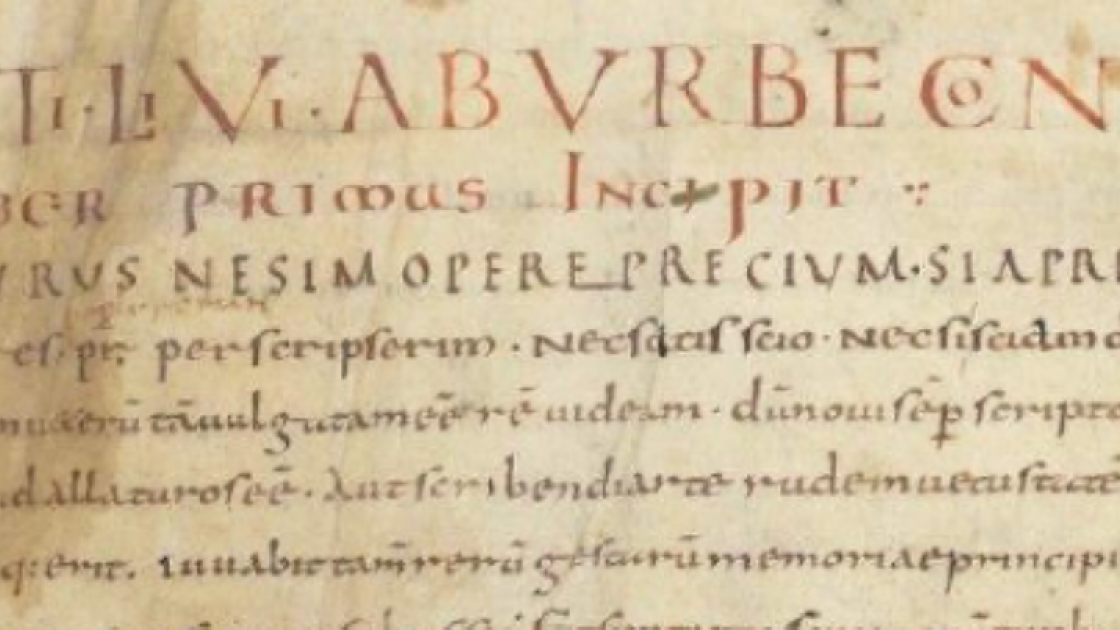 TI·LIVI·ABVRBECON
BER PRIMUS INCIPIT
RUS NESIM OPERE PRECIUM·SIAPRI
es·pr; perscripserim·Necsatisscio·Necsisciam
muerū tāuulgātamēērē uideam·dūnouisēp̄ scripto
dallaturoseē·Autscribendiarte rudemuetustatē
q:erit. iuuabittam̄rerū gestarūmemoriaeprincipi